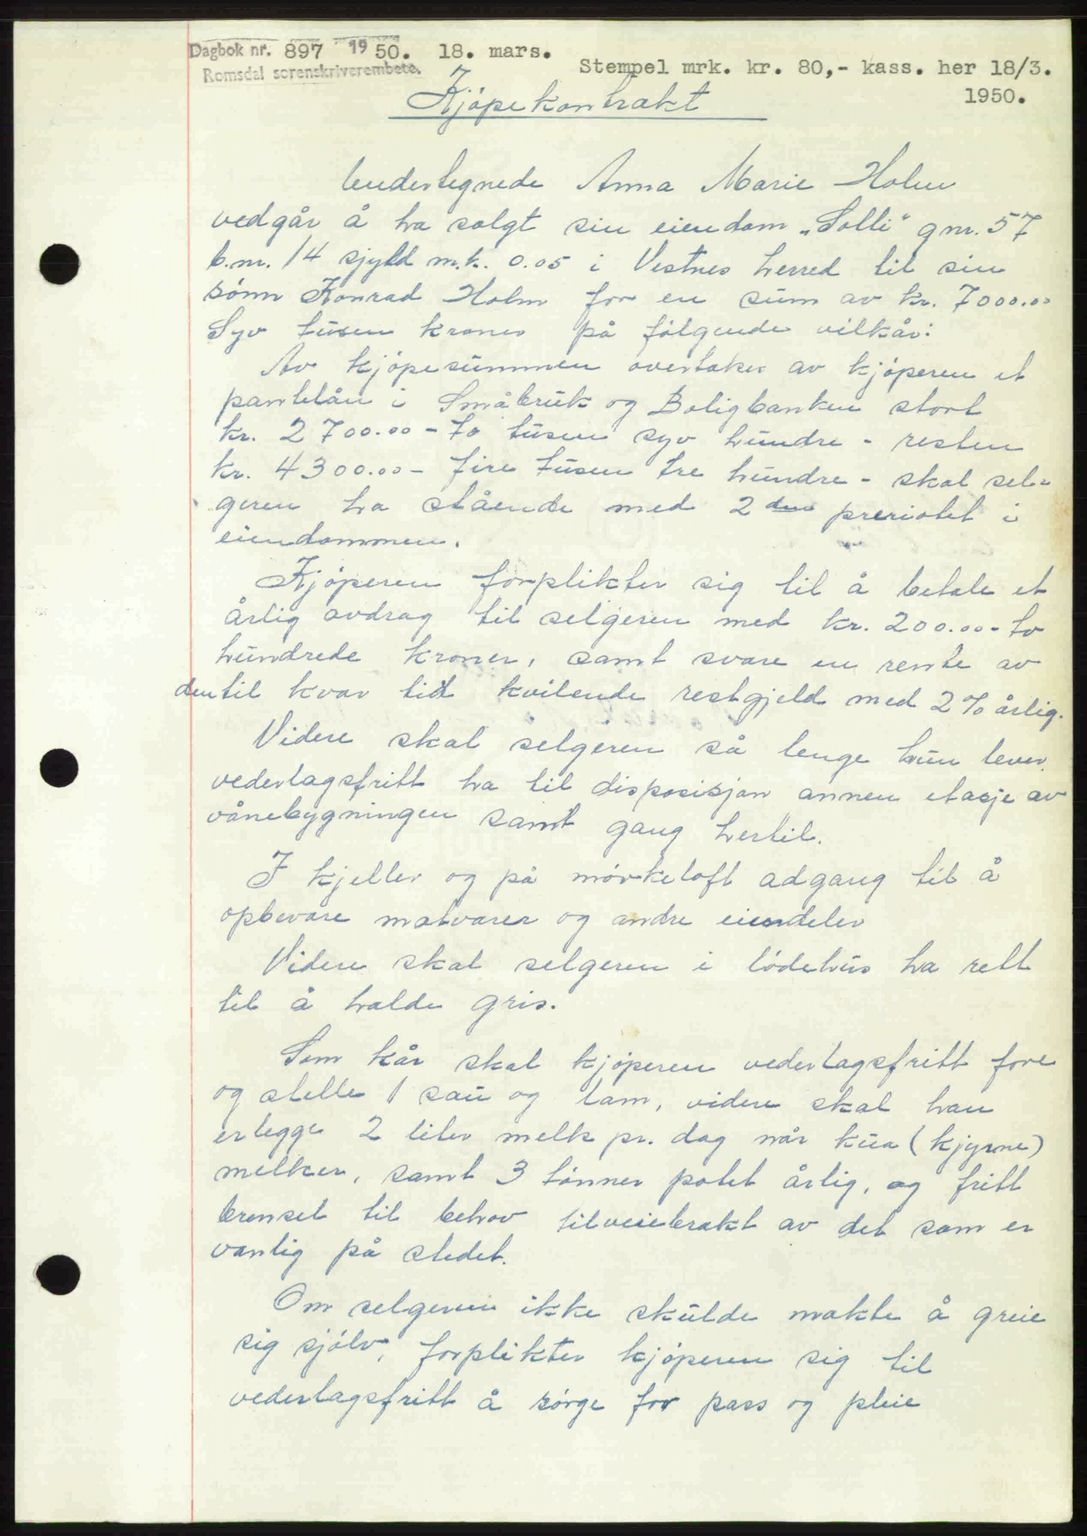 Dagbok nr. 897 1950. 18. mars.
Romsdal sorenskriverembete.
Stempel mrk. kr. 80,- kass. her 18/3.
1950.
Kjøpekontrakt
Undertegnede Anna Marie Holm
vedgår å ha solgt sin eiendom „Solli" gnr. 57
b.nr. 14 sjyld m.k. 0.05 i Vestnes herred til sin
sønn Konrad Holm for en sum av kr. 7000.00
Syv tusen kroner på følgende vilkår:
Av kjøpesummen overtaker av kjøperen et
pantelån i Småbruk og Boligbanken stort
kr. 2700.00 - to tusen syv hundre - resten
kr. 4300.00 - fire tusen tre hundre - skal sel-
geren ha stående med 2den preriotet i
eiendommen.
Kjøperen forplikter sig til å betale et
årlig avdrag til selgeren med kr. 200.00 - to
hundrede kroner, samt svare en rente av
den til kvar tid kvilende restgjeld med 2 % årlig.
Videre skal selgeren så lenge hun lever
vederlagsfritt ha til disposisjon annen etasje av
vånebygningen samt gang hertil.
I kjeller og på mørkeloft adgang til å
opbevare matvarer og andre eiendeler
Videre skal selgeren i lødehus ha rett
til å halde gris.
Som kår skal kjøperen vederlagsfritt fore
og stelle 1 sau og lam, videre skal han
erlegge 2 liter melk pr. dag når kua (kjyrne)
melker, samt 3 tønner potet årlig, og fritt
brensel til behov tilveiebrakt av det som er
vanlig på stedet.
Om selgeren ikke skulde makte å greie
sig sjølv, forplikter kjøperen sig til
vederlagsfritt å sørge for pass og pleie